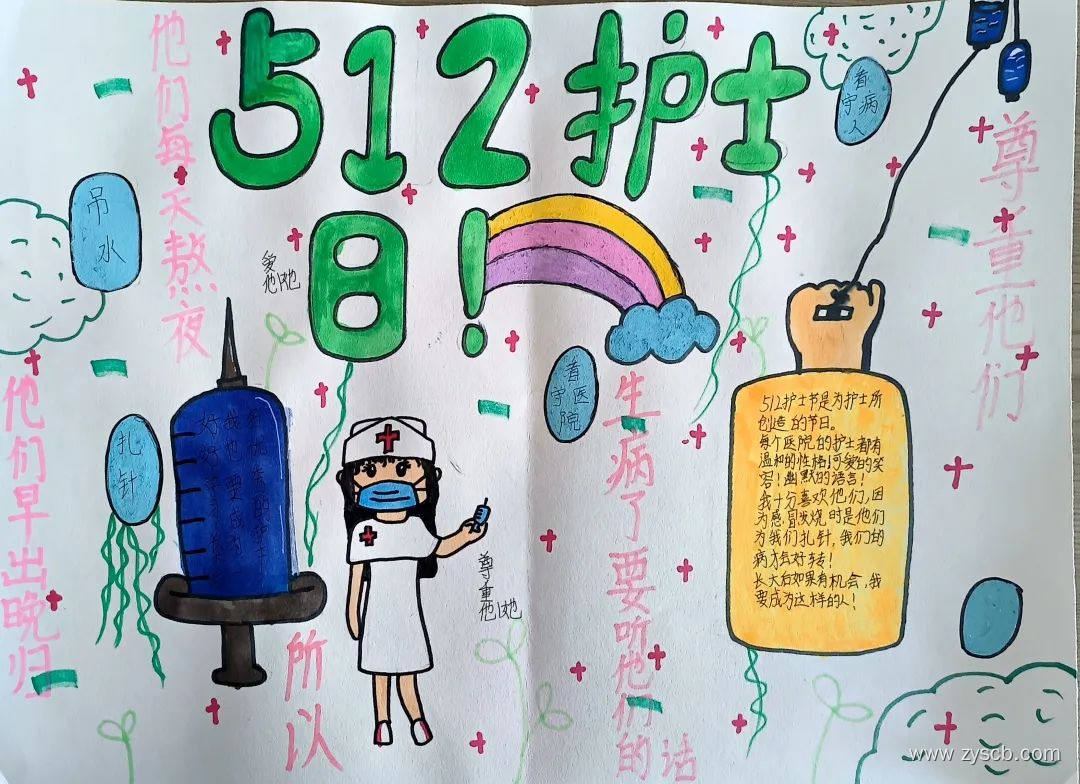 512护士
日!
他们每天熬夜
他们早出晚归
吊
水
扎
针
爱
他|她
看
守病
人
看医
守院
尊重他们
尊重
他|她
所以
生病了要听他们的话
512护士节是为护士所
创造的节日。
每个医院的护士都有
温和的性格!可爱的笑
容!幽默的语言!
我十分喜欢他们,因
为感冒发烧时是他们
为我们扎针,我们的
病才会好转!
长大后如果有机会,我
要成为这样的人!
www.zyscb.com